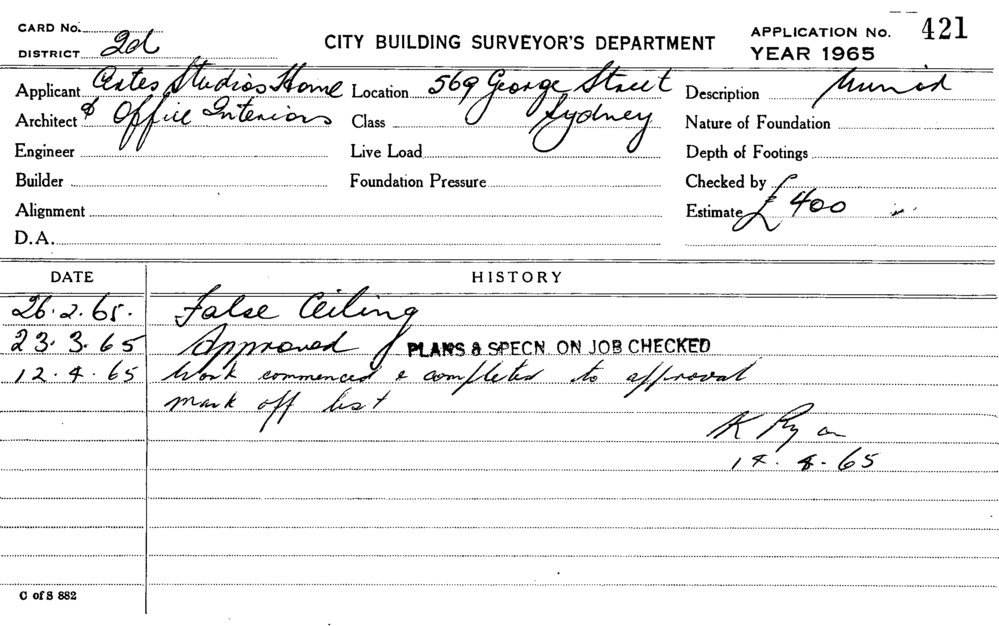 CARD No.
DISTRICT 2d
CITY BUILDING SURVEYOR'S DEPARTMENT
APPLICATION No. 421
YEAR 1965
Applicant Artes Studios Home Location 569 George Street Description
Architect & Office Interiors Class Sydney Nature of Foundation
Engineer Live Load Depth of Footings
Builder Foundation Pressure Checked by
Alignment Estimate £400
D.A.
DATE HISTORY
26.2.65. False Ceiling
23.3.65 Approved PLANS & SPECN. ON JOB CHECKED
12.4.65 Work commenced & completed to approval
mark off list
K Ryan
14.4.65
C of S 882